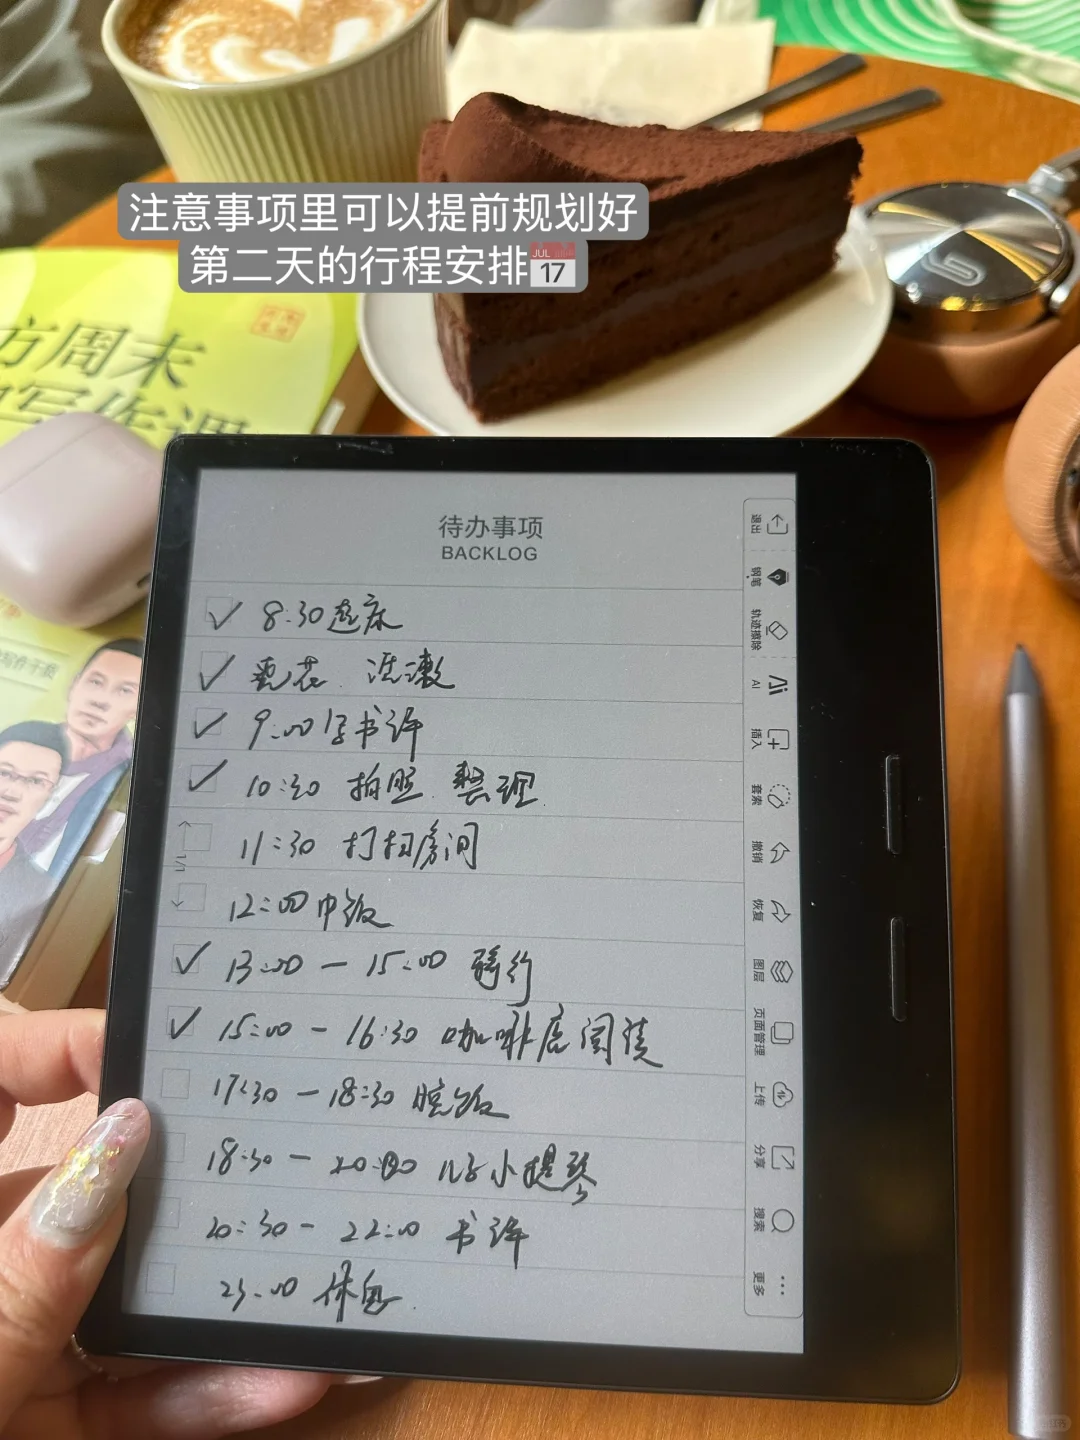 注意事项里可以提前规划好
第二天的行程安排
JUL
17
方周末
写作课
待办事项
BACKLOG
8:30起床
浇花 洗漱
9:00写书评
10:30 拍照 整理
11:30 打扫房间
12:00 中饭
13:00 — 15:00 骑行
15:00 — 16:30 咖啡店阅读
17:30 — 18:30 晚饭
18:30 — 20:00 儿子小提琴
20:30 — 22:00 书评
23:00 休息
1/1
退出
钢笔
轨迹擦除
AI
插入
套索
撤销
恢复
图层
页面管理
上传
分享
搜索
更多